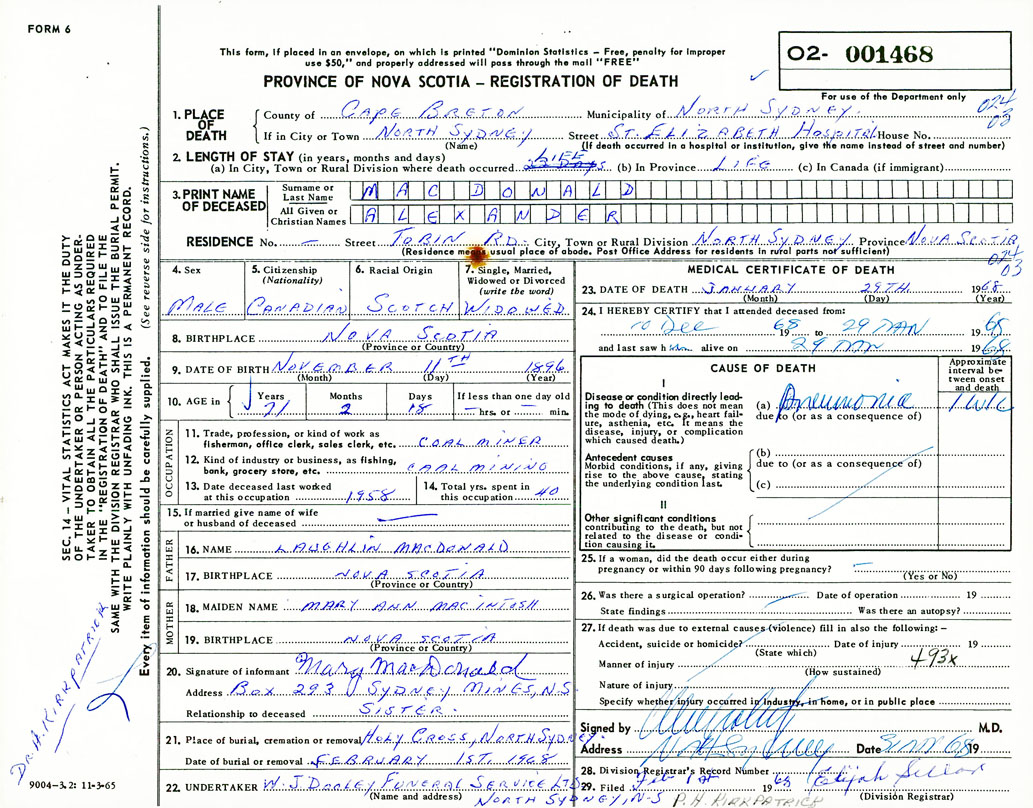 FORM 6
This form, if placed in an envelope, on which is printed "Dominion Statistics – Free, penalty for improper
use $50," and properly addressed will pass through the mail "FREE"
PROVINCE OF NOVA SCOTIA – REGISTRATION OF DEATH
02- 001468
For use of the Department only
024
03
1. PLACE OF DEATH
County of CAPE BRETON Municipality of NORTH SYDNEY.
If in City or Town NORTH SYDNEY Street ST. ELIZABETH HOSPITAL House No.
(Name) (If death occurred in a hospital or institution, give the name instead of street and number)
2. LENGTH OF STAY (in years, months and days)
(a) In City, Town or Rural Division where death occurred LIFE (b) In Province LIFE (c) In Canada (if immigrant)
3. PRINT NAME OF DECEASED
Surname or Last Name MACDONALD
All Given or Christian Names ALEXANDER
RESIDENCE No. – Street TOBIN RD. City, Town or Rural Division NORTH SYDNEY Province NOVA SCOTIA
(Residence means usual place of abode. Post Office Address for residents in rural parts not sufficient)
024
03
4. Sex
MALE
5. Citizenship
(Nationality)
CANADIAN
6. Racial Origin
SCOTCH
7. Single, Married,
Widowed or Divorced
(write the word)
WIDOWED
8. BIRTHPLACE NOVA SCOTIA
(Province or Country)
9. DATE OF BIRTH NOVEMBER 11TH 1896
(Month) (Day) (Year)
10. AGE in Years Months Days If less than one day old
71 2 18 – hrs. or – min.
OCCUPATION
11. Trade, profession, or kind of work as
fisherman, office clerk, sales clerk, etc. COAL MINER
12. Kind of industry or business, as fishing,
bank, grocery store, etc. COAL MINING
13. Date deceased last worked
at this occupation 1958
14. Total yrs. spent in
this occupation 40
15. If married give name of wife
or husband of deceased —
FATHER
16. NAME LAUGHLIN MACDONALD
17. BIRTHPLACE NOVA SCOTIA
(Province or Country)
MOTHER
18. MAIDEN NAME MARY ANN MACINTOSH
19. BIRTHPLACE NOVA SCOTIA
(Province or Country)
20. Signature of informant Mary MacDonald
Address BOX 293 SYDNEY MINES, N.S.
Relationship to deceased SISTER.
21. Place of burial, cremation or removal HOLY CROSS, NORTH SYDNEY.
Date of burial or removal FEBRUARY 1ST. 1968
22. UNDERTAKER W. J. DOOLEY FUNERAL SERVICE LTD
(Name and address) NORTH SYDNEY, N.S
MEDICAL CERTIFICATE OF DEATH
23. DATE OF DEATH JANUARY 29TH 1968
(Month) (Day) (Year)
24. I HEREBY CERTIFY that I attended deceased from:
10 Dec 68 19 to 29 JAN 1968
and last saw him alive on 29 JAN 1968
CAUSE OF DEATH
Approximate interval between onset and death
I
Disease or condition directly leading to death (This does not mean the mode of dying, e.g., heart failure, asthenia, etc. It means the disease, injury, or complication which caused death.)
(a) Pneumonia 1 WK
due to (or as a consequence of)
Antecedent causes
Morbid conditions, if any, giving rise to the above cause, stating the underlying condition last.
(b)
due to (or as a consequence of)
(c)
II
Other significant conditions
contributing to the death, but not related to the disease or condition causing it.
25. If a woman, did the death occur either during
pregnancy or within 90 days following pregnancy? –
(Yes or No)
26. Was there a surgical operation? Date of operation 19
State findings Was there an autopsy?
27. If death was due to external causes (violence) fill in also the following:–
Accident, suicide or homicide? Date of injury 19
(State which)
Manner of injury 493x
(How sustained)
Nature of injury
Specify whether injury occurred in industry, in home, or in public place
Signed by M.D.
Address North Sydney Date 68 19
28. Division Registrar's Record Number
29. Filed Feb 1st 1968 Elijah Sellar
P. H. KIRKPATRICK (Division Registrar)
SEC. 14 – VITAL STATISTICS ACT MAKES IT THE DUTY
OF THE UNDERTAKER OR PERSON ACTING AS UNDER-
TAKER TO OBTAIN ALL THE PARTICULARS REQUIRED
IN THE "REGISTRATION OF DEATH" AND TO FILE THE
SAME WITH THE DIVISION REGISTRAR WHO SHALL ISSUE THE BURIAL PERMIT.
WRITE PLAINLY WITH UNFADING INK. THIS IS A PERMANENT RECORD.
Every item of information should be carefully supplied. (See reverse side for instructions.)
DR. H. KIRKPATRICK
9004–3.2: 11-3-65